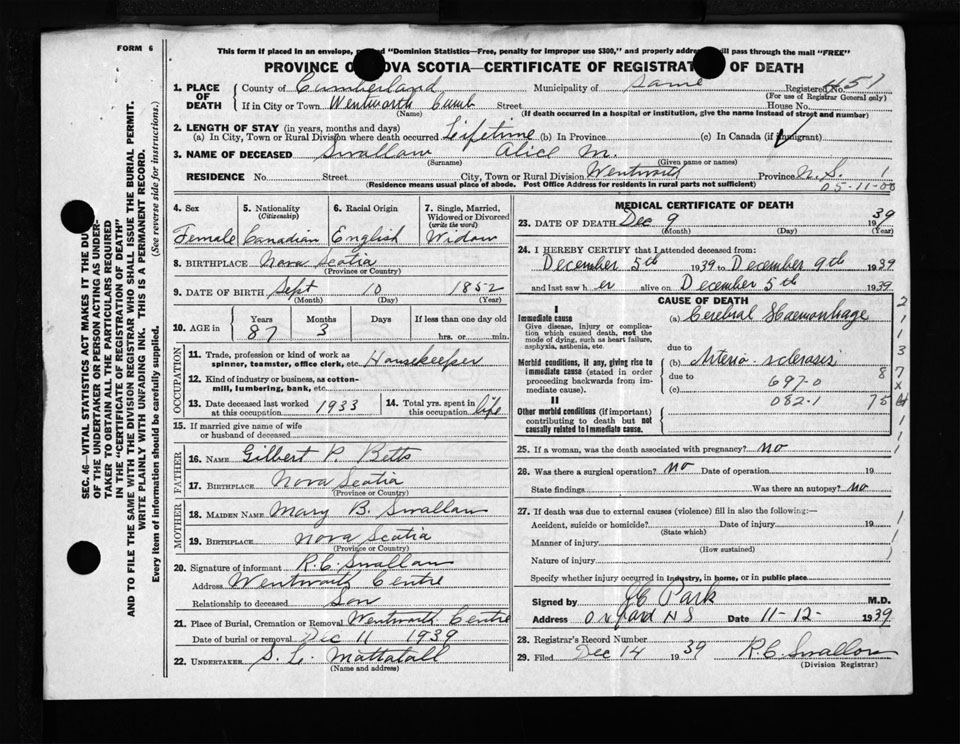 FORM 6
This form if placed in an envelope, "Dominion Statistics—Free, penalty for improper use $300," and properly will pass through the mail "FREE"
PROVINCE OF NOVA SCOTIA—CERTIFICATE OF REGISTRATION OF DEATH
1. PLACE OF DEATH County of Cumberland Municipality of Same Registered No. 451
(For use of Registrar General only)
If in City or Town Wentworth Cumb Street House No.
(Name) (If death occurred in a hospital or institution, give the name instead of street and number)
2. LENGTH OF STAY (in years, months and days)
(a) In City, Town or Rural Division where death occurred Lifetime (b) In Province (c) In Canada (if immigrant)
3. NAME OF DECEASED Swallow Alice M.
(Surname) (Given name or names)
RESIDENCE No. Street City, Town or Rural Division Wentworth Province N.S. 1
(Residence means usual place of abode. Post Office Address for residents in rural parts not sufficient) 05-11-00
4. Sex 5. Nationality (Citizenship) 6. Racial Origin 7. Single, Married, Widowed or Divorced (write the word)
Female Canadian English Widow
8. BIRTHPLACE Nova Scotia
(Province or Country)
9. DATE OF BIRTH Sept 10 1852
(Month) (Day) (Year)
10. AGE in Years Months Days If less than one day old
87 3 hrs. or min.
OCCUPATION
11. Trade, profession or kind of work as spinner, teamster, office clerk, etc. Housekeeper
12. Kind of industry or business, as cotton-mill, lumbering, bank, etc.
13. Date deceased last worked at this occupation 1933 14. Total yrs. spent in this occupation life
15. If married give name of wife or husband of deceased
FATHER
16. NAME Gilbert P. Betts
17. BIRTHPLACE Nova Scotia
(Province or Country)
MOTHER
18. MAIDEN NAME Mary B. Swallow
19. BIRTHPLACE Nova Scotia
(Province or Country)
20. Signature of informant R.C. Swallow
Address Wentworth Centre
Relationship to deceased Son
21. Place of Burial, Cremation or Removal Wentworth Centre
Date of burial or removal Dec 11 1939
22. UNDERTAKER S. L. Mattatall
(Name and address)
MEDICAL CERTIFICATE OF DEATH
23. DATE OF DEATH Dec 9 1939
(Month) (Day) (Year)
24. I HEREBY CERTIFY that I attended deceased from:
December 5th 1939 to December 9th 1939
and last saw her alive on December 5th 1939
CAUSE OF DEATH
I
Immediate cause (a) Cerebral Haemorrhage
Give disease, injury or complication which caused death, not the mode of dying, such as heart failure, asphyxia, asthenia, etc.
due to
Morbid conditions, if any, giving rise to immediate cause (stated in order proceeding backwards from immediate cause). (b) Arterio sclerosis
due to 87
(c) 697-0
082-1 75
II
Other morbid conditions (if important) contributing to death but not causally related to immediate cause.
25. If a woman, was the death associated with pregnancy? no
26. Was there a surgical operation? no Date of operation 19
State findings Was there an autopsy? no
27. If death was due to external causes (violence) fill in also the following:—
Accident, suicide or homicide? Date of injury 19
(State which)
Manner of injury
(How sustained)
Nature of injury
Specify whether injury occurred in industry, in home, or in public place
Signed by J C Park M.D.
Address Oxford NS Date 11-12- 1939
28. Registrar's Record Number
29. Filed Dec 14 1939 R.C. Swallow
(Division Registrar)
SEC. 46—VITAL STATISTICS ACT MAKES IT THE DUTY
OF THE UNDERTAKER OR PERSON ACTING AS UNDER-
TAKER TO OBTAIN ALL THE PARTICULARS REQUIRED
IN THE "CERTIFICATE OF REGISTRATION OF DEATH"
AND TO FILE THE SAME WITH THE DIVISION REGISTRAR WHO SHALL ISSUE THE BURIAL PERMIT.
WRITE PLAINLY WITH UNFADING INK. THIS IS A PERMANENT RECORD.
Every item of information should be carefully supplied. (See reverse side for instructions.)